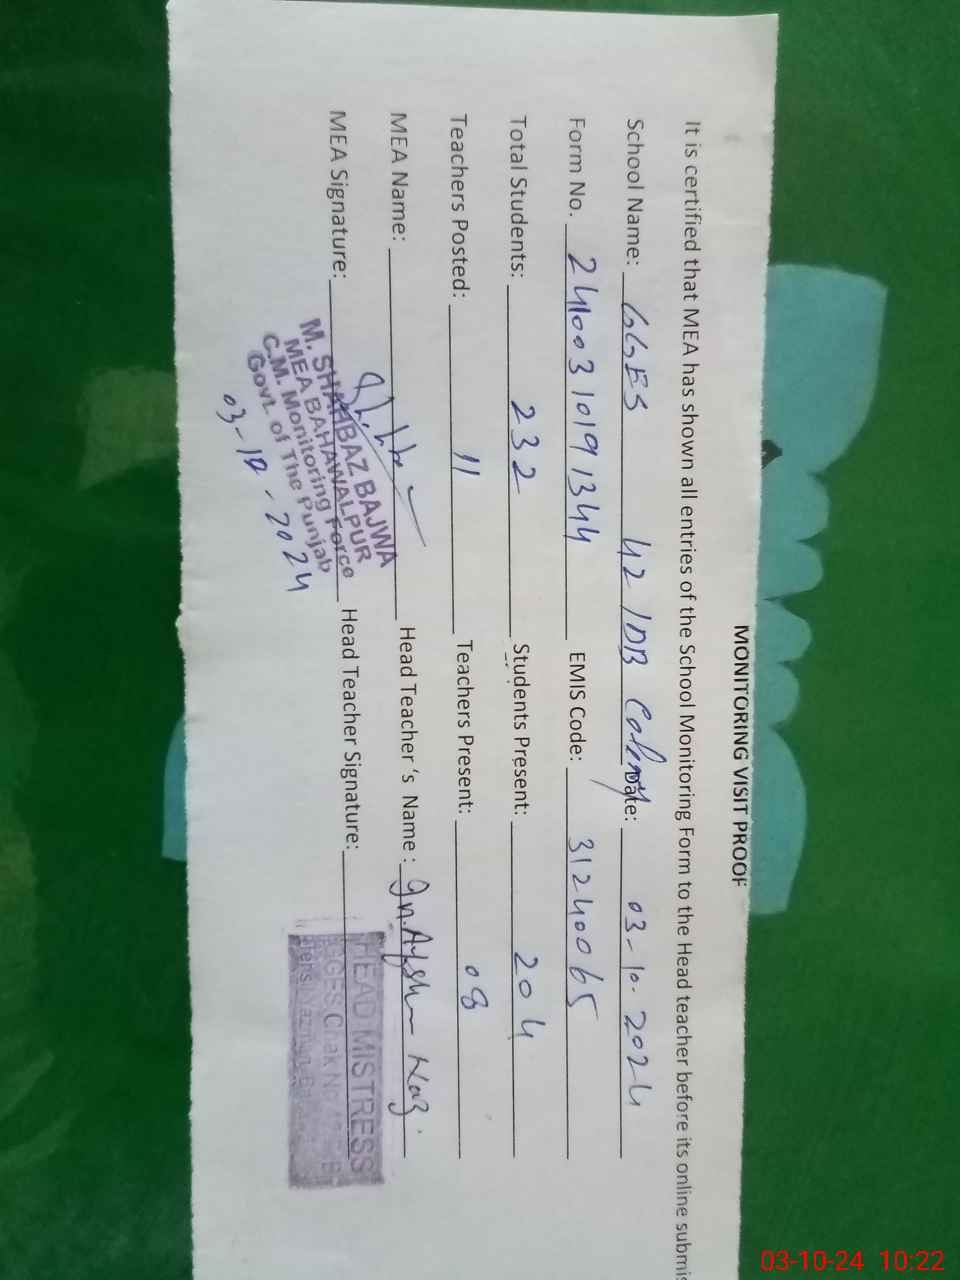 MONITORING VISIT PROOF
It is certified that MEA has shown all entries of the School Monitoring Form to the Head teacher before its online submis
School Name: GGES 42 /DB Colony Date: 03-10-2024
Form No. 2410031019 1344 EMIS Code: 31240065
Total Students: 232 Students Present: 204
Teachers Posted: 11 Teachers Present: 08
MEA Name: Head Teacher's Name: Naz
MEA Signature: Head Teacher Signature:
M. SHAHBAZ BAJWA
MEA BAHAWALPUR
C.M. Monitoring Force
Govt. of The Punjab
03-10-2024
HEAD MISTRESS
GGES Chak No
03-10-24 10:22